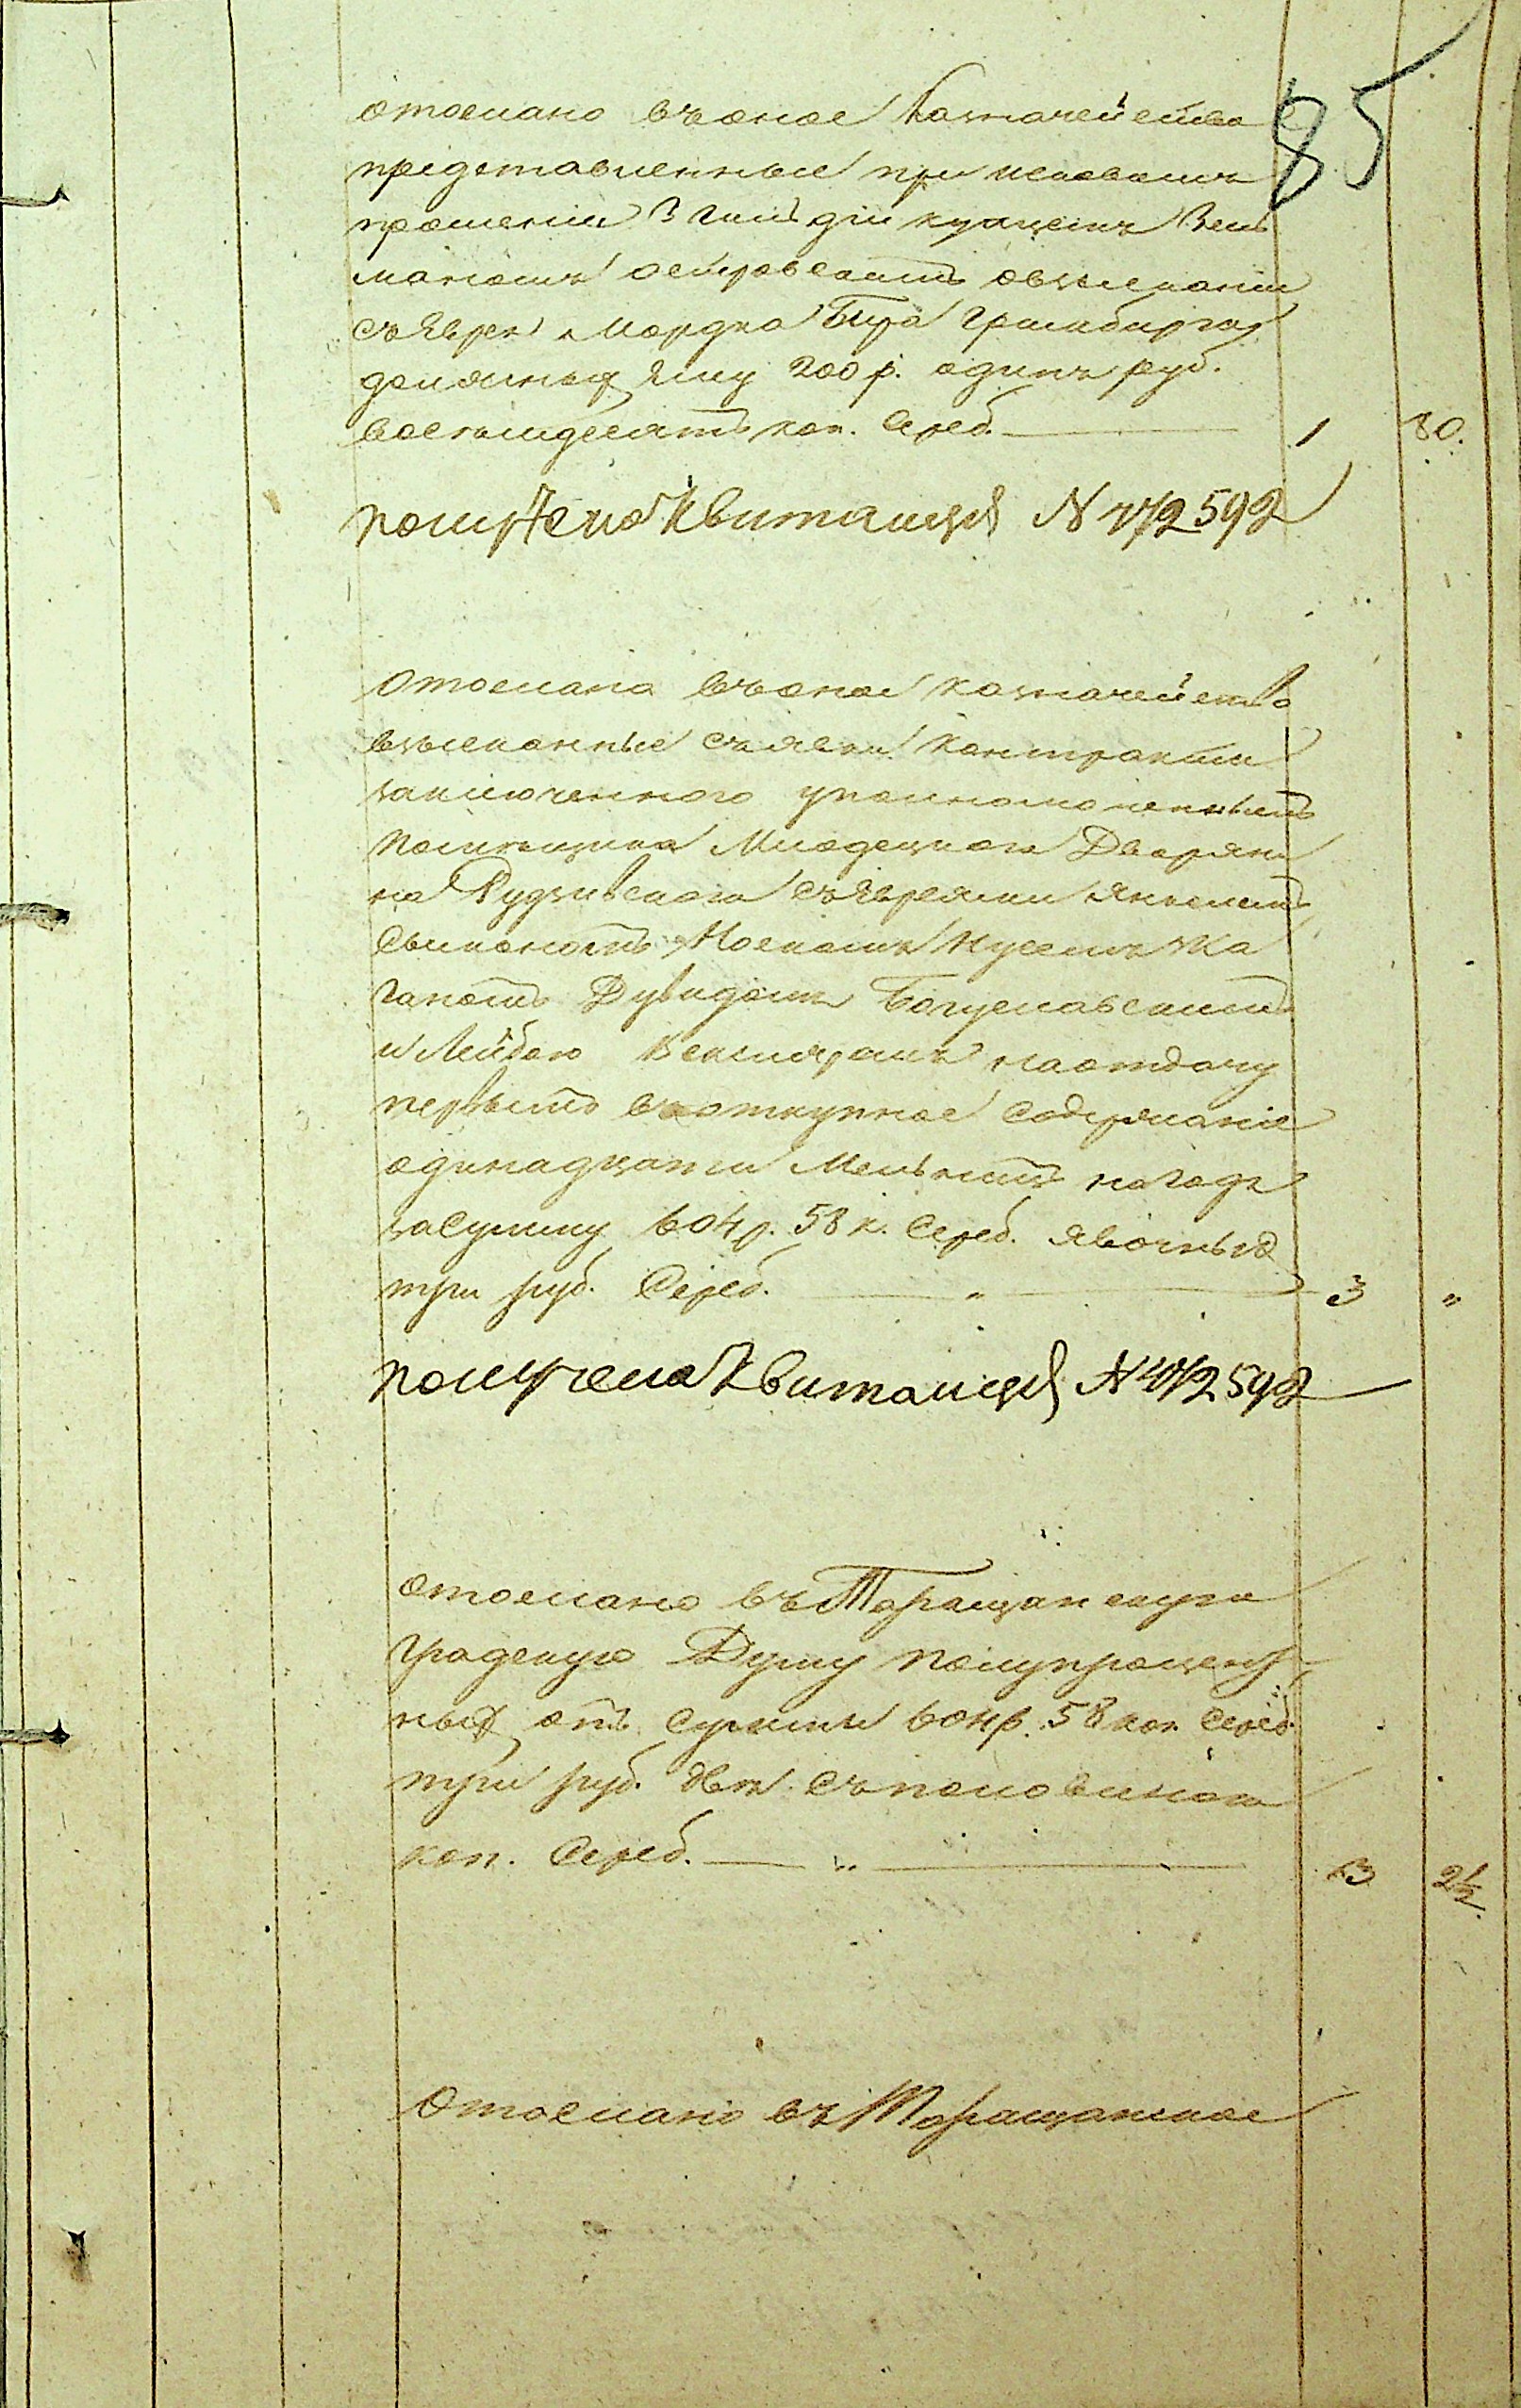 85
отослано въ оное Казначейство
представленные при исковомъ
прошеніи 3 гильдіи купцемъ Зель
маномъ Островскимъ овзысканіи
съ Еврея Мордка Бера Гринберга
должныхъ ему 200 р. одинъ руб.
восемьдесятъ коп. Сереб. 1 80.
получена Квитанція N 472592
Отослано въ оное казначейство
взысканные съ явки контракта
заключеннаго уполномоченнымъ
помѣщика Младецкаго Дворяни
на Рудзивскаго съ Евреями Янкелемъ
Мошкомъ Нусемъ Ка
ганомъ Дувидомъ Богуславскимъ
и Лейбою Векслеромъ на отдачу
первымъ въ откупное содержаніе
одинадцати Мельницъ на годъ
за сумму 604 р. 58 к. Сереб. явочныхъ
три руб. Сереб. " 3 "
получена Квитанція N 472592
Отослано въ Таращанскую
градскую Думу полупроцент
ныхъ отъ суммы 604 р. 58 коп. Сереб.
три руб. двѣ съ половиною
коп. Сереб. " 3 2½.
Отослано въ Таращанское